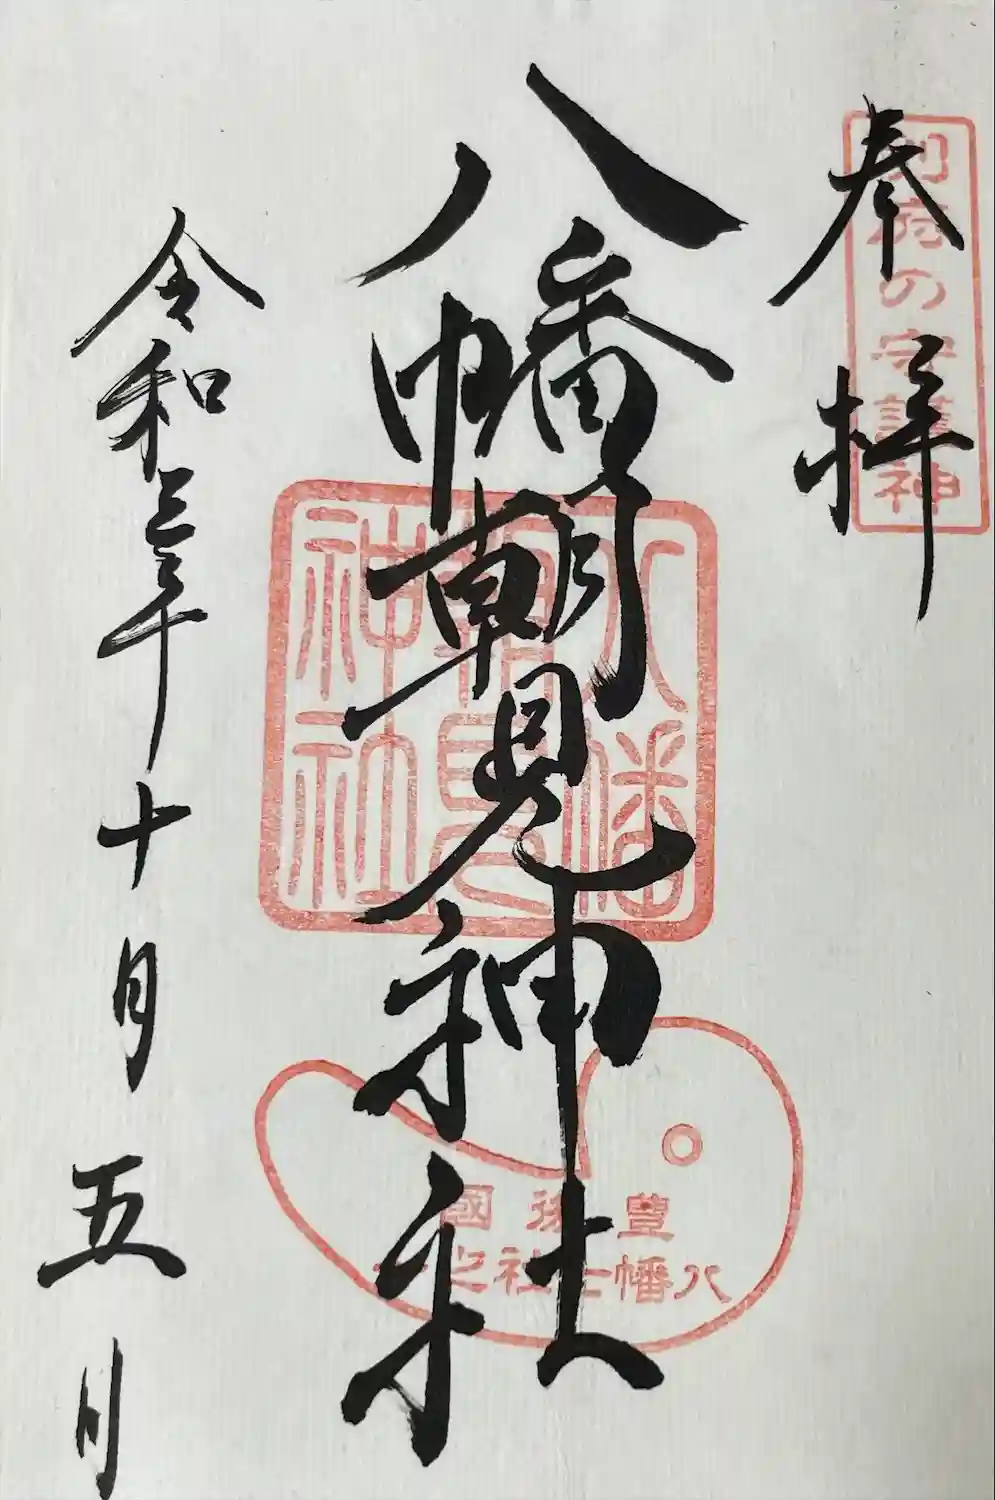 奉拝
別府の守護神
八幡朝見神社
八幡朝見神社
豊後國
八幡七社之
令和三年十月五日